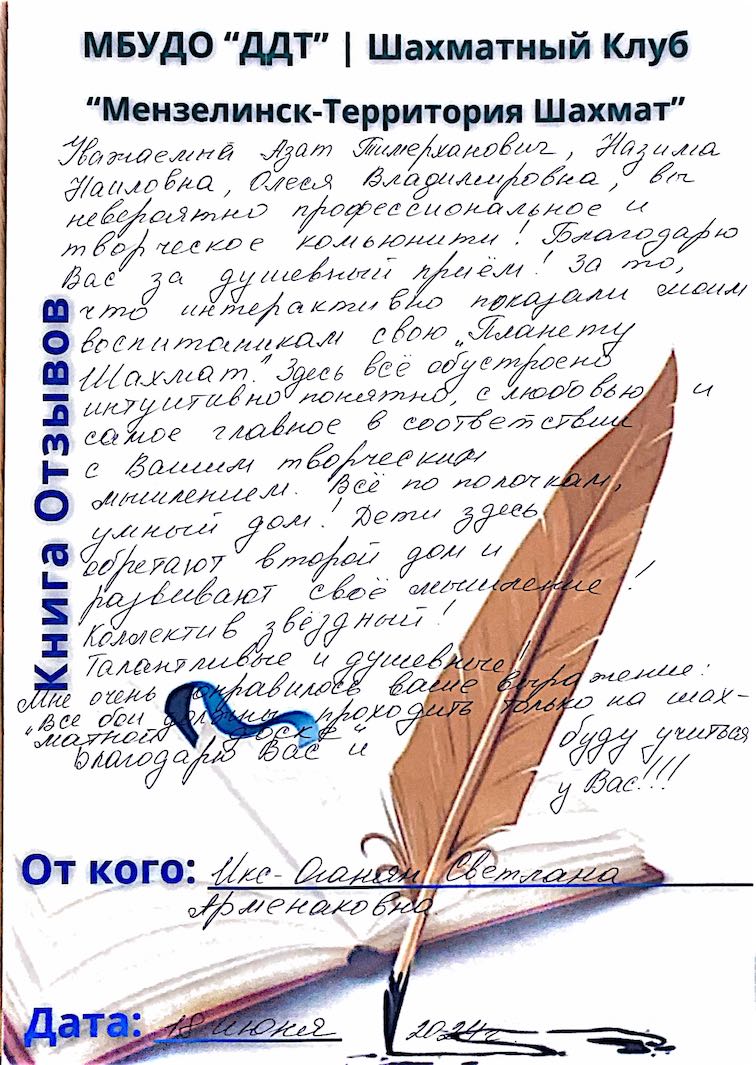 МБУДО “ДДТ” | Шахматный Клуб
“Мензелинск-Территория Шахмат”
Книга Отзывов
Уважаемый Азат Тимерханович, Назима
Наиловна, Олеся Владимировна, вы
невероятно профессиональное и
творческое комьюнити! Благодарю
Вас за душевный приём! За то,
что интерактивно показали моим
воспитаникам свою „Планету
Шахмат“. Здесь всё обустроено
интуитивно понятно, с любовью и
самое главное в соответствии
с Вашим творческим
мышлением. Всё по полочкам,
умный дом! Дети здесь
обретают второй дом и
развивают своё мышление!
Коллектив звёздный!
Талантливые и душевные!
Мне очень понравилось ваше выражение:
„Все бои должны проходить только на шах-
матной доске“
Благодарю Вас и буду учиться
у Вас!!!
От кого: Икс-Оганян Светлана
Арменаковна
Дата: 18 июня 2024г.